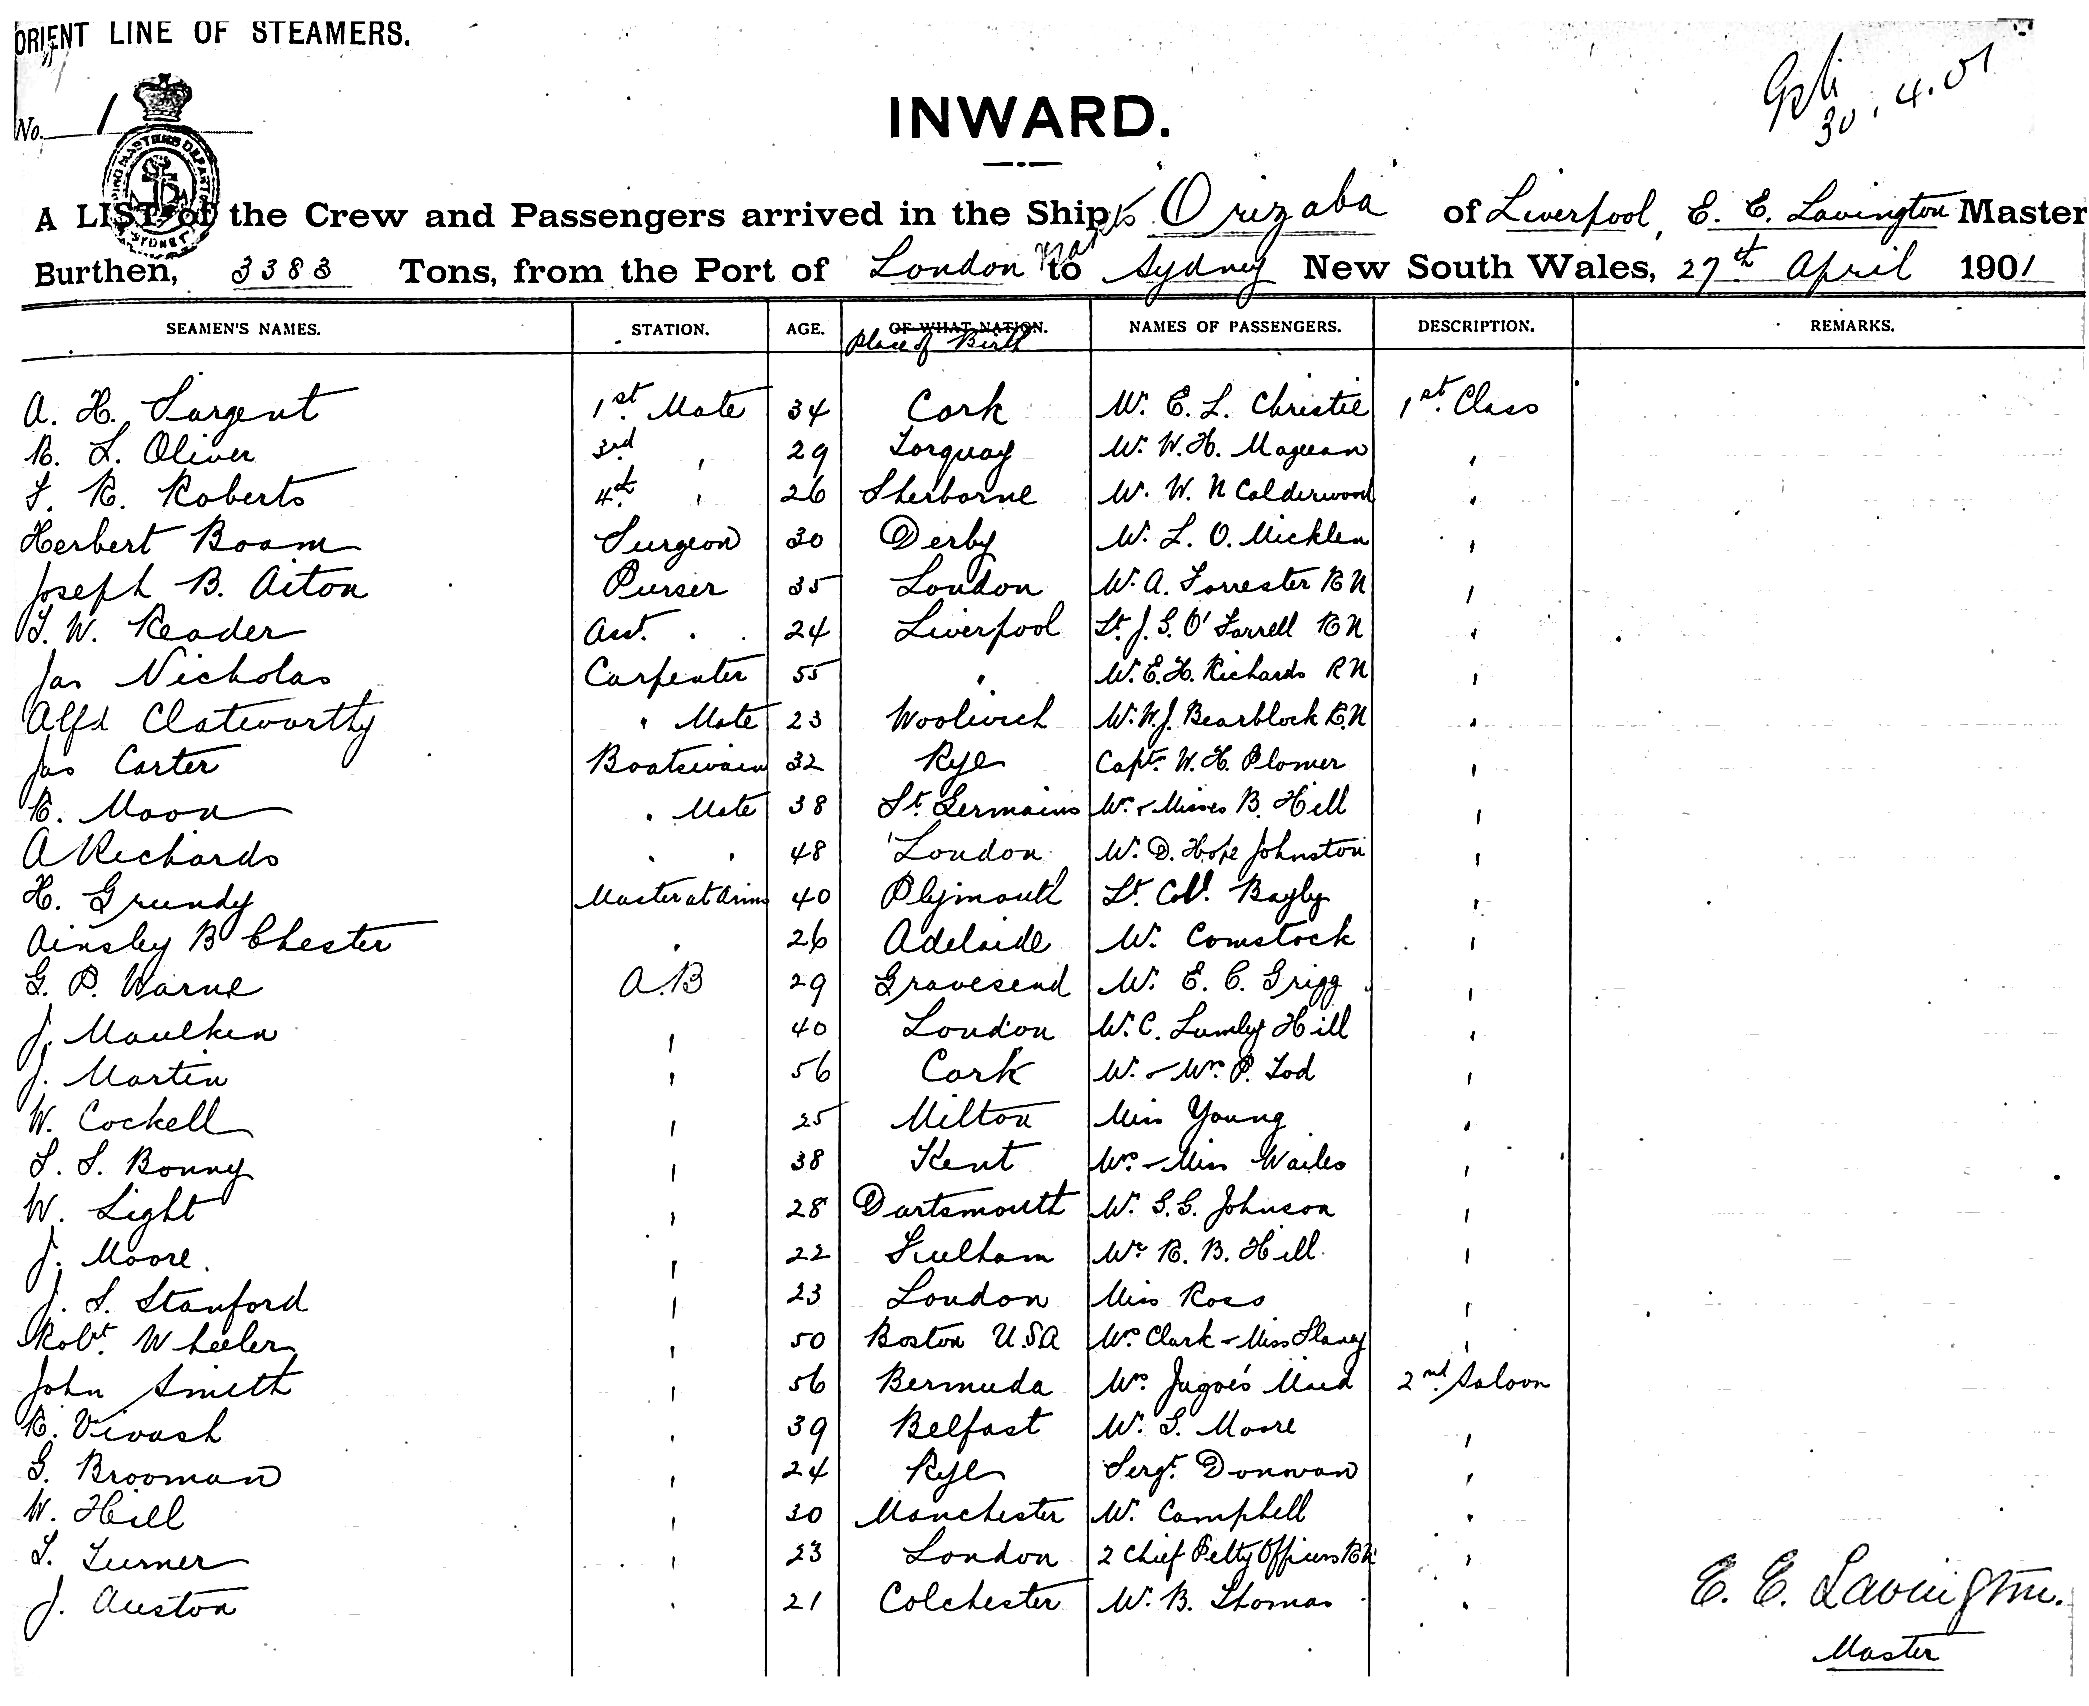 ORIENT LINE OF STEAMERS.
30.4.01
No. 1
INWARD.
A LIST of the Crew and Passengers arrived in the Ship "Orizaba" of Liverpool, E. E. Lavington Master
Burthen, 3383 Tons, from the Port of London to Sydney New South Wales, 27th April 1901
SEAMEN'S NAMES. STATION. AGE. OF WHAT NATION. NAMES OF PASSENGERS. DESCRIPTION. REMARKS.
Place of Birth
A. H. Sargent 1st. Mate 34 Cork Mr. E. L. Christie 1st. Class
R. L. Oliver 3rd " 29 Torquay Mr. W. H. Magean "
T. R. Roberts 4th " 26 Sherborne Mr. W. N Calderwood "
Herbert Boam Surgeon 30 Derby Mr. L. O. Micklem "
Joseph B. Aiton Purser 35 London Mr. A. Forrester RN "
T. W. Reader Asst. " 24 Liverpool Lt. J. G. O'Farrell RN "
Jas Nicholas Carpenter 55 " Mr. E. H. Richards RN "
Alfd Clatworthy " Mate 23 Woolwich Mr. W. J. Bearblock R.N "
Jas Carter Boatswain 32 Rye Capt. W. H. Plomer "
R. Moon " Mate 38 St. Germains Mrs & Misses B. Hill "
A Richards " " 48 London Mr. D. Hope Johnston "
H. Grundy Master at Arms 40 Plymouth Lt. Coll. Bagly "
Ainsley B Chester " 26 Adelaide Mr. Comstock "
G. P. Warne A.B 29 Gravesend Mr. E. C. Grigg "
J. Maulkin " 40 London Mr. C. Lumley Hill "
J. Martin " 56 Cork Mr. & Mrs. P. Tod "
W. Cockell " 25 Milton Miss Young "
S. S. Bonny " 38 Kent Mrs & Miss Wailes "
W. Light " 28 Dartsmouth Mr. G. G. Johnson "
J. Moore. " 22 Fulham Mr. R. B. Hill "
J. S. Stanford " 23 London Miss Ross "
Robt. Wheeler " 50 Boston U.S.A Mrs Clark & Miss Slaney "
John Smith " 56 Bermuda Mrs Jagoe's Maid 2nd. Saloon
R. Vivash " 39 Belfast Mr. S. Moore "
G. Brooman " 24 Rye Sergt. Donovan "
W. Hill " 30 Manchester Mr. Campbell "
T. Turner " 23 London 2 Chief Petty Officers RN "
J. Auston " 21 Colchester Mr. B. Thomas "
E. E. Lavington.
Master